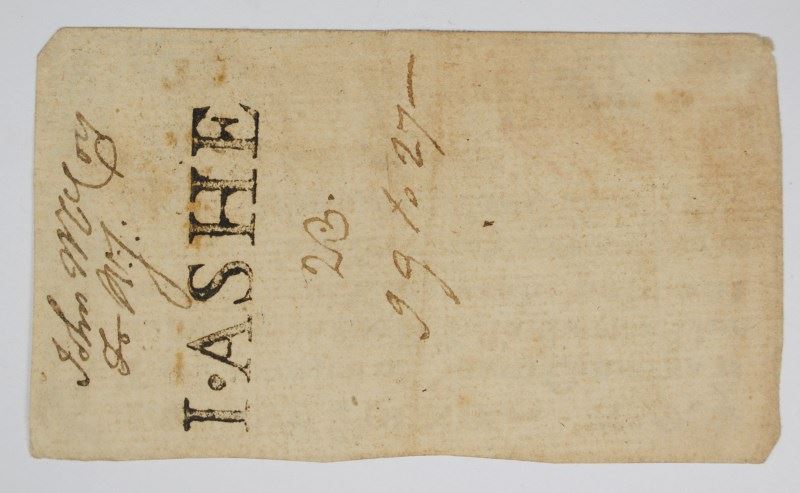 John McCoy
& N.J.
I·ASHE
23.
99 to 27—